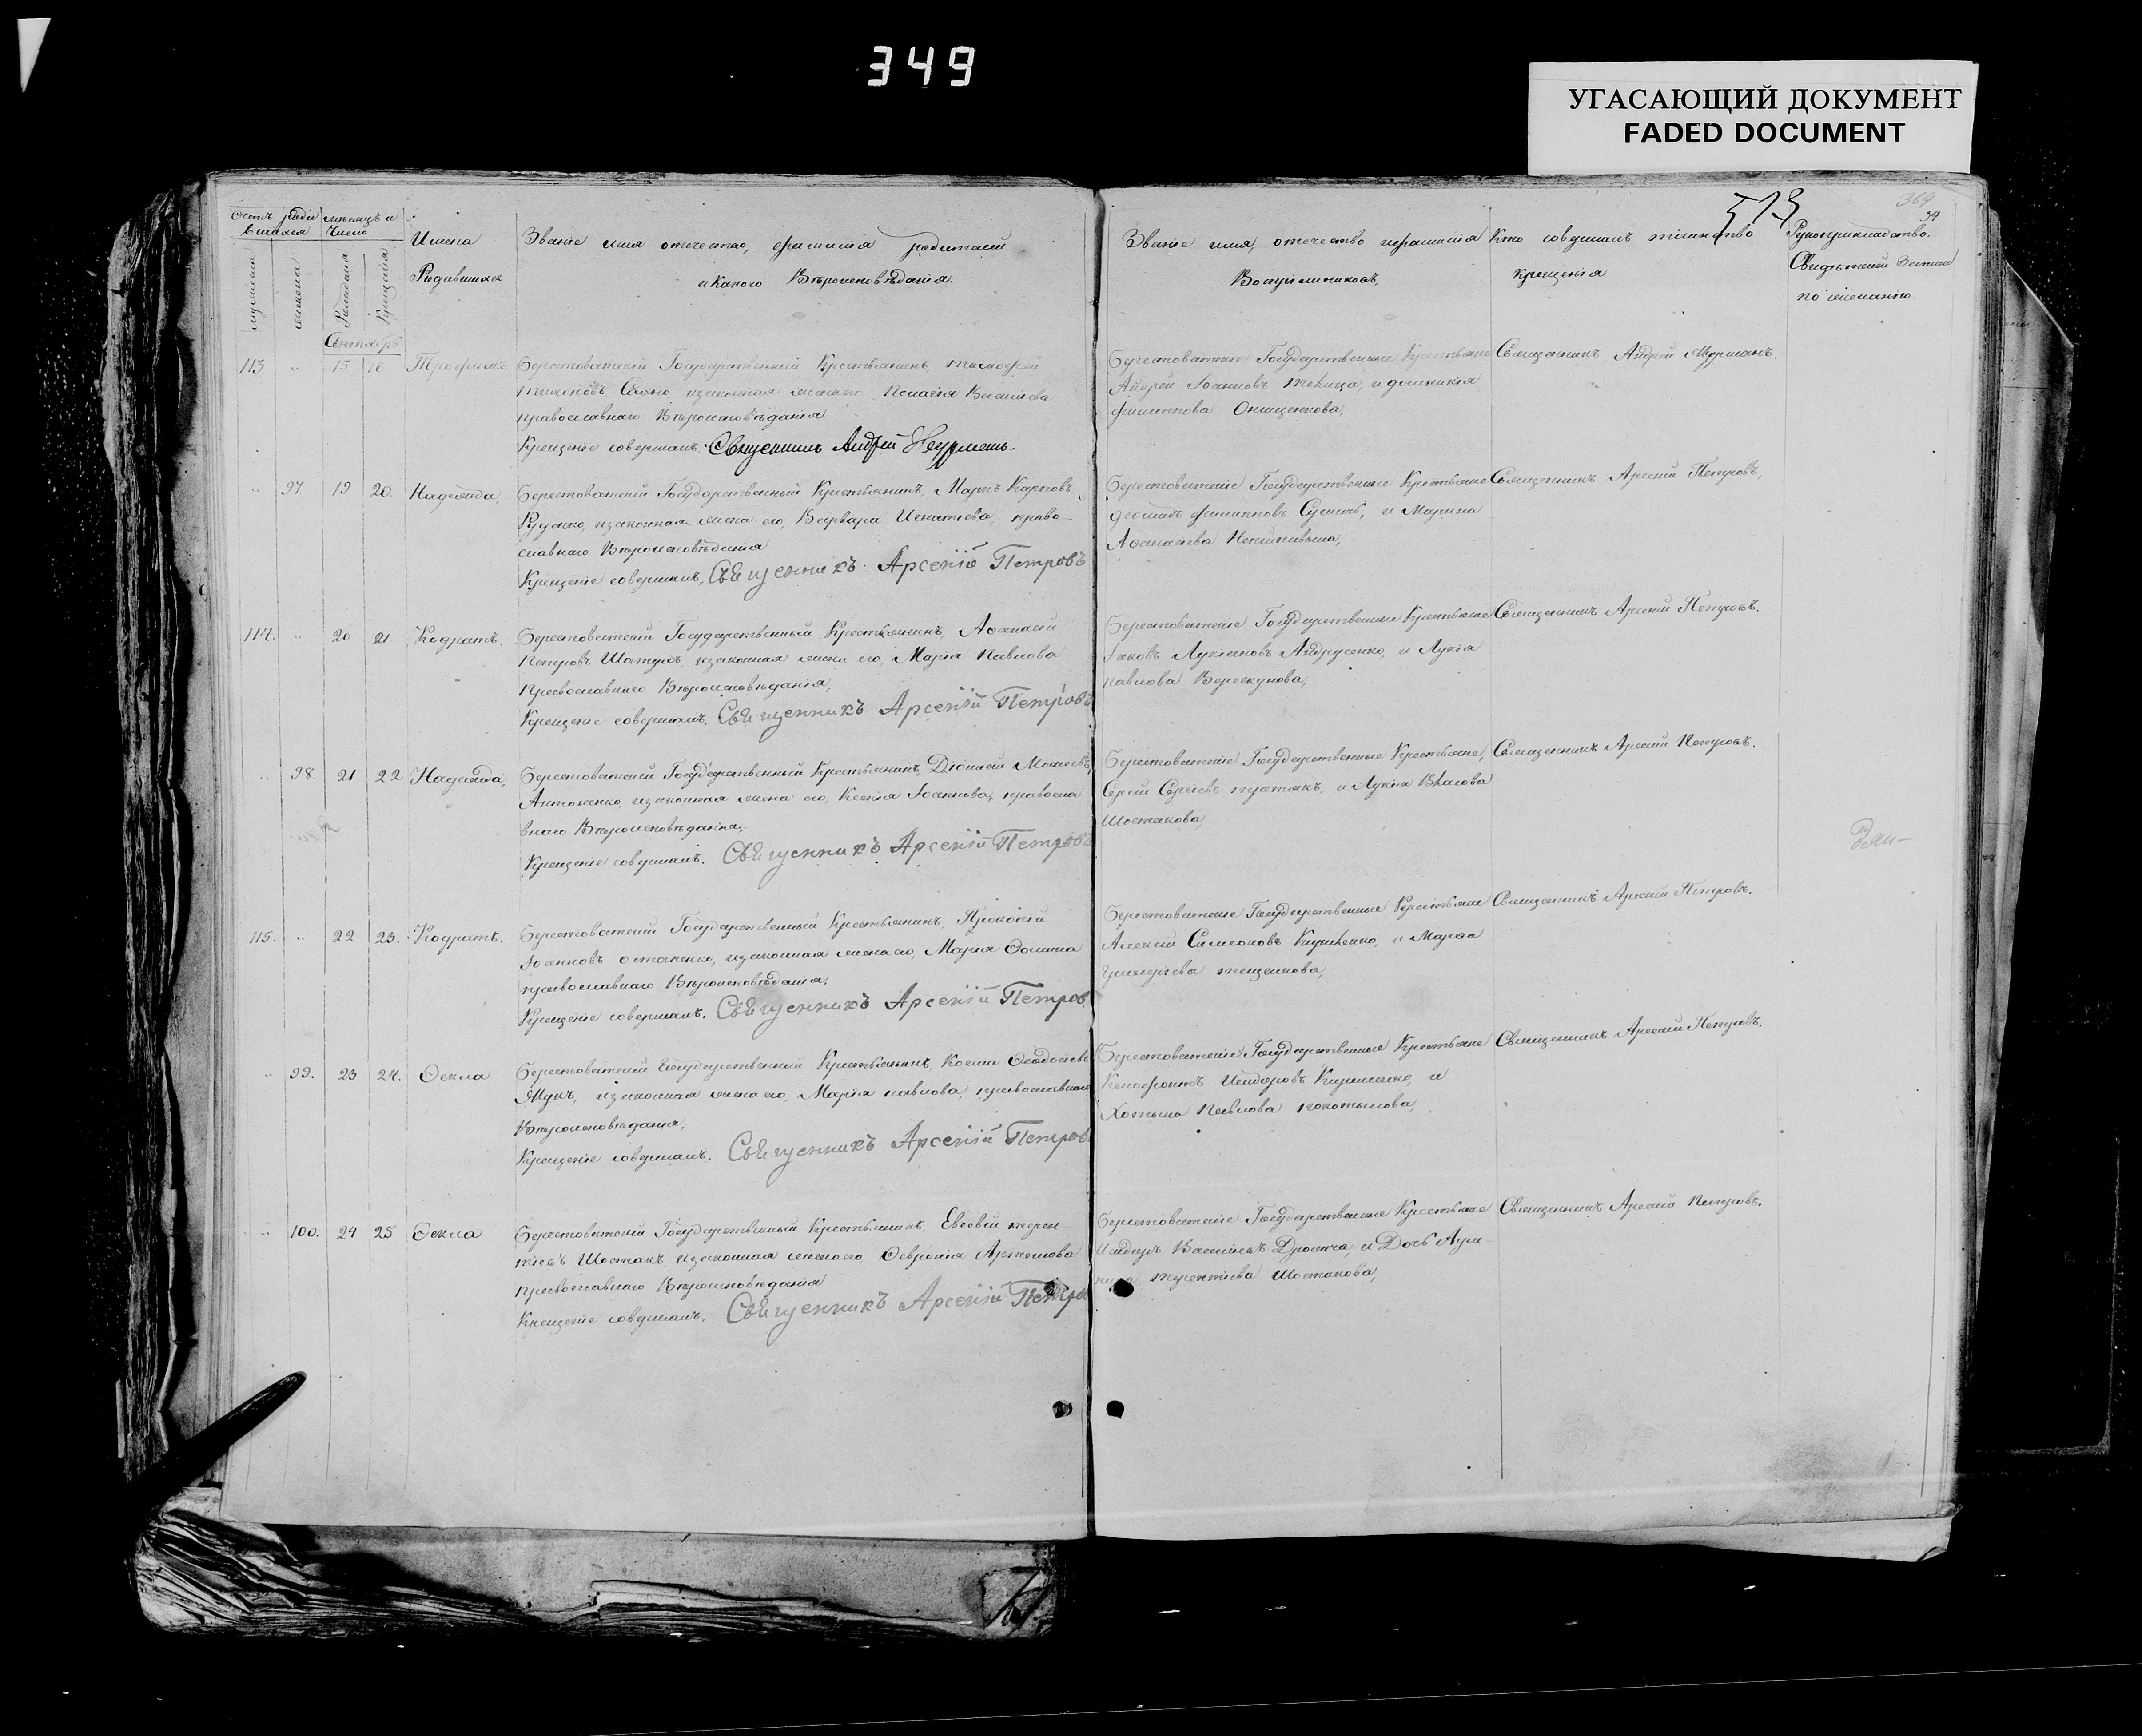 349
УГАСАЮЩИЙ ДОКУМЕНТ
FADED DOCUMENT
513
364
34
Счетъ роди
вшихся
мѣсяцъ и
Число
мужеска
женска
Рожденія
Крещенія
Имена
Родившихся
Званіе имя отчество, фамилія родителей
и какого Вѣроисповѣданія.
Званіе имя, отчество и фамилія
Воспріемниковъ,
Кто совершалъ таинство
крещенія
Рукоприкладство
Свидѣтелей записи
по желанію.
Сентябрь
113 " 15 16 Трофимъ
Берестоватскій Государственный Крестьянинъ, Тимофей
изаконная жена его Пелагія Васильева
православнаго Вѣроисповѣданія
Крещеніе совершалъ Священникъ Андрей
Берестоватскіе Государственные Крестьяне
Андрей Іоанновъ и
Филиппова Онищенкова,
Священникъ Андрей
" 97 19 20 Надежда,
Берестоватскій Государственный Крестьянинъ, Маркъ Карповъ
Руденко, изаконная жена его, Варвара Игнатіева, право-
славнаго Вѣроисповѣданія
Крещеніе совершалъ, Священникъ Арсеній Петровъ
Берестоватскіе Государственные Крестьяне
Филипповъ и Марина
Аѳанасіева
Священникъ Арсеній Петровъ,
114. " 20 21 Кодратъ.
Берестоватскій Государственный Крестьянинъ, Аѳанасій
Петровъ изаконная жена его, Марія Павлова
Православнаго Вѣроисповѣданія,
Крещеніе совершалъ. Священникъ Арсеній Петровъ
Берестоватскіе Государственные Крестьяне
Іаковъ Лукіановъ Андрусенко, и Лукія
Павлова
Священникъ Арсеній Петровъ.
" 98 21 22 Надежда,
Берестоватскій Государственный Крестьянинъ,
Антоненко, изаконная жена его, Ксенія Іоаннова, правосла
внаго Вѣроисповѣданія,
Крещеніе совершалъ. Священникъ Арсеній Петровъ
Берестоватскіе Государственные Крестьяне,
Сергій Сергіевъ и Лукія Власова
Шостакова,
Священникъ Арсеній Петровъ.
115. " 22 23. Кодратъ.
Берестоватскій Государственный Крестьянинъ, Прокопій
Іоанновъ Остапенко, изаконная жена его, Марія Ѳомина
православнаго Вѣроисповѣданія,
Крещеніе совершалъ. Священникъ Арсеній Петров
Берестоватскіе Государственные Крестьяне
Алексій Симеоновъ и Марѳа
Священникъ Арсеній Петровъ.
" 99. 23 24. Ѳекла
Берестоватскій Государственный Крестьянинъ, Косма
изаконная жена его, Марія Павлова, православнаго
Вѣроисповѣданія,
Крещеніе совершалъ. Священникъ Арсеній Петров
Берестоватскіе Государственные Крестьяне
Ксенофонтъ и
Павлова
Священникъ Арсеній Петровъ.
" 100. 24 25 Ѳекла
Берестоватскій Государственный Крестьянинъ, Евсевій Терен
тіевъ Шостакъ, изаконная жена его Февронія Артемова
православнаго Вѣроисповѣданія
Крещеніе совершалъ. Священникъ Арсеній Петро
Берестоватскіе Государственные Крестьяне
Василіевъ и Дочь
Терентіева Шостакова,
Священникъ Арсеній Петровъ.